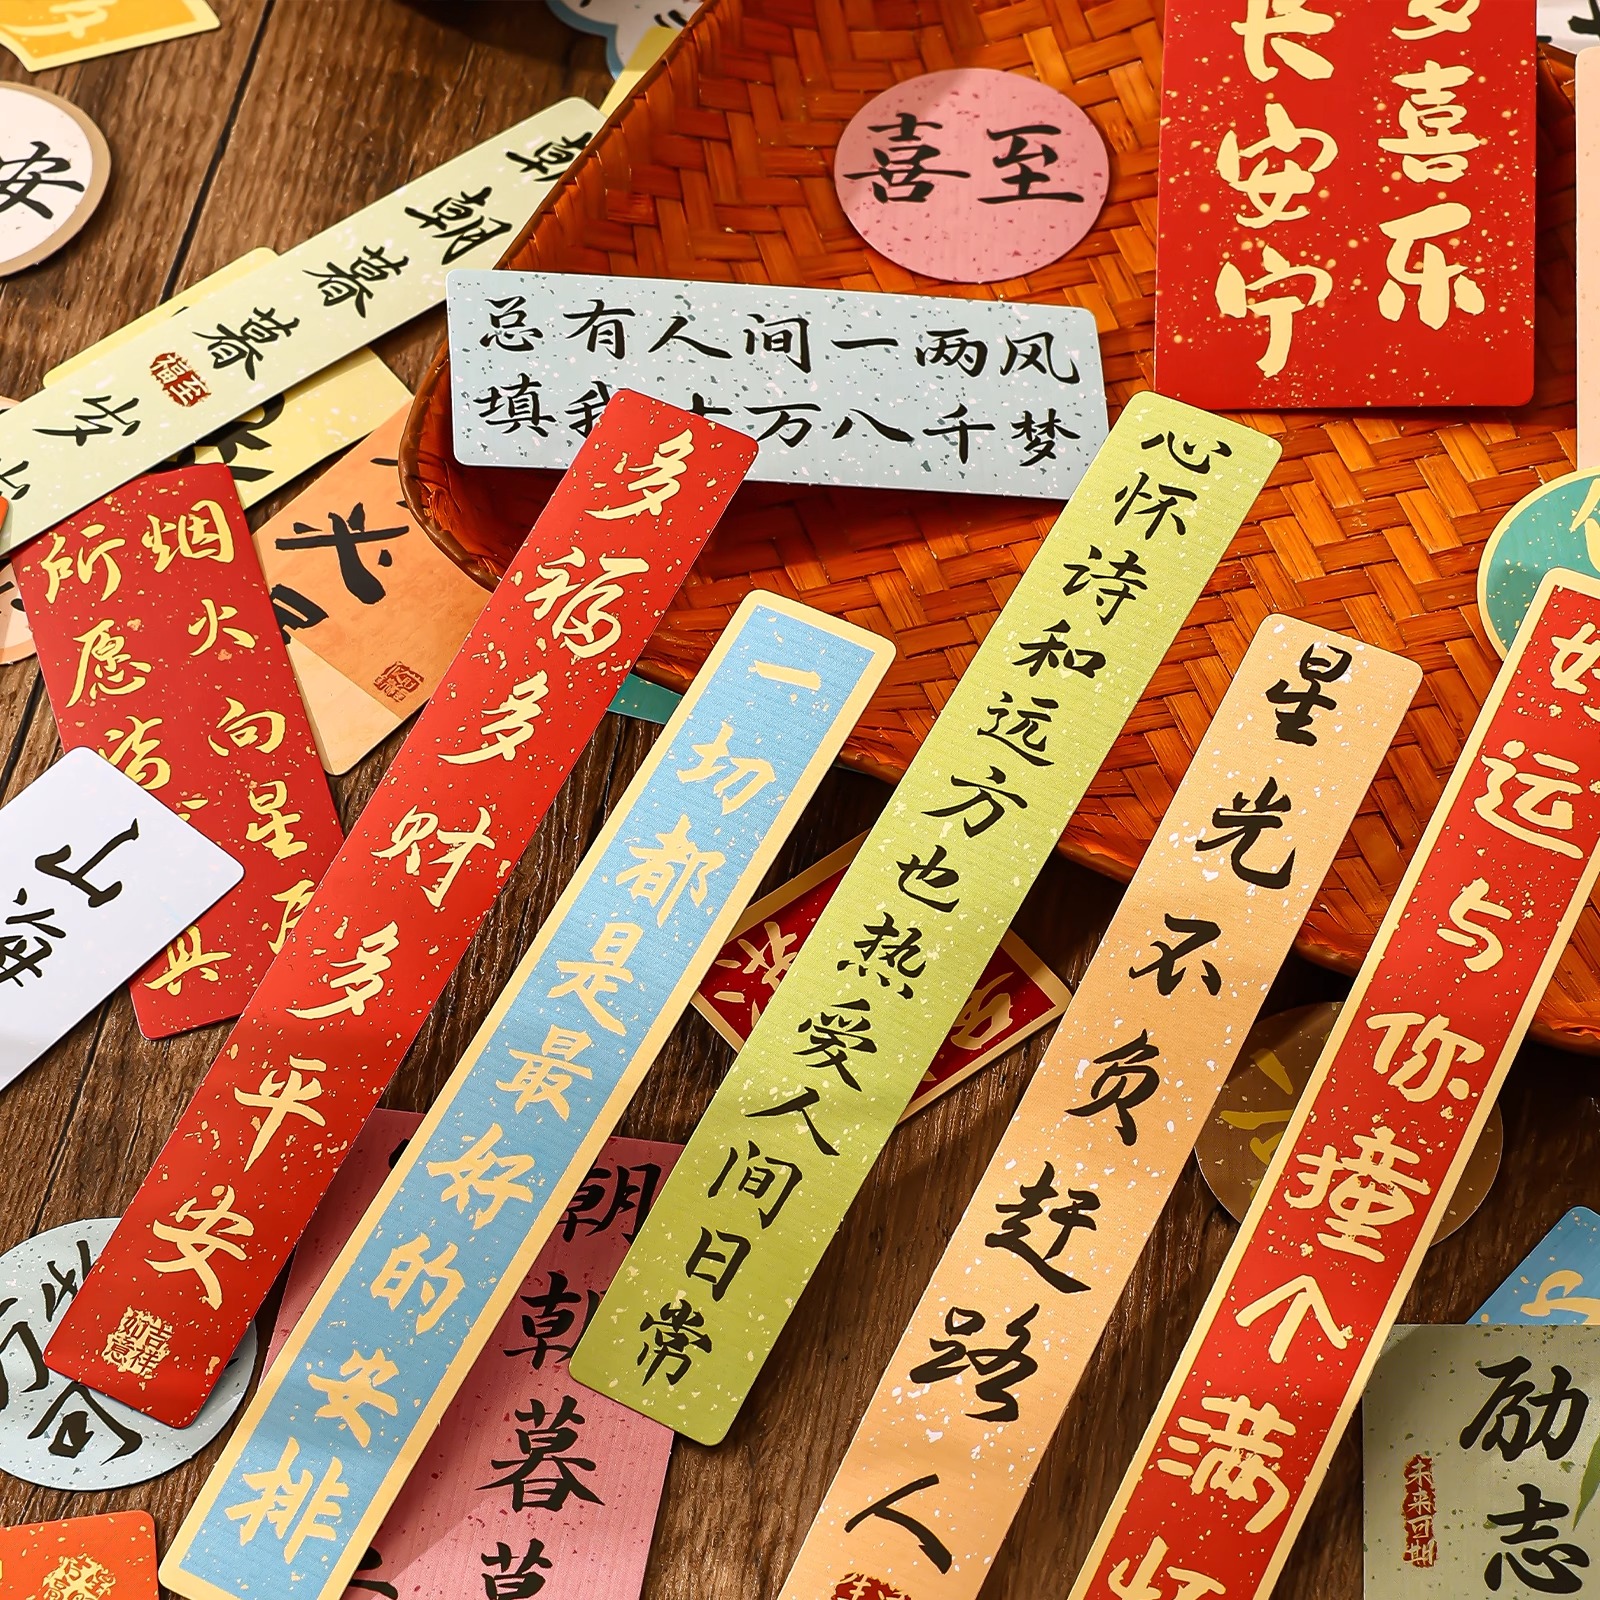 安
朝朝暮暮岁
喜至
喜乐
长安宁
总有人间一两风
填我十万八千梦
烟火向星
所愿皆
山海
多福多多财多多平安
吉祥如意
一切都是最好的安排
心怀诗和远方也热爱人间日常
星光不负赶路人
好运与你撞个满怀
朝朝暮暮
励志
未来可期